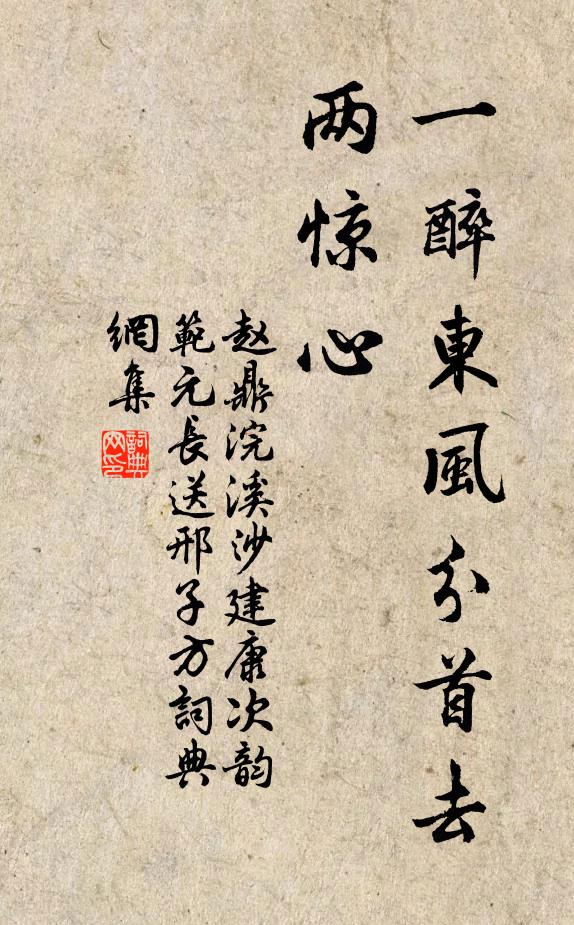 一醉東風分首去
两惊心
赵鼎浣溪沙建康次韵
範元長送邢子方詞典
網集
詞典网印